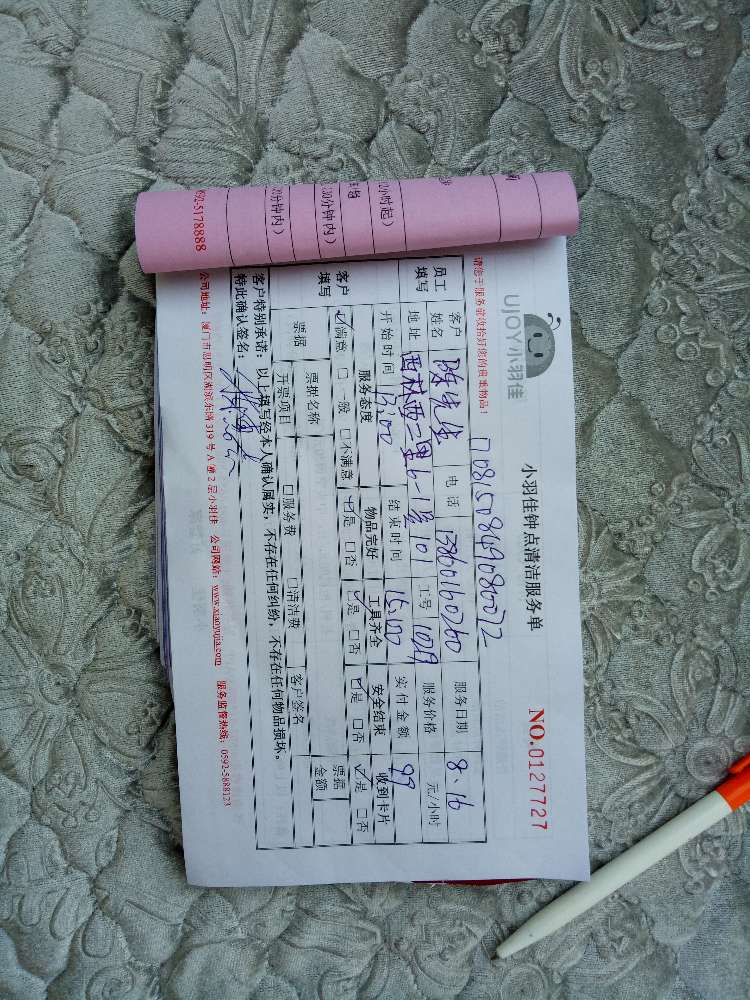 UJOY小羽佳
小羽佳钟点清洁服务单
NO.0127727
请您于服务前收拾好您的贵重物品!
员工填写
客户姓名 陈先生 电话 13860160260 服务日期 8、16
地址 西林西二里6-1号101 工号 1029 服务价格 元/小时
开始时间 13:00 结束时间 15:00 实付金额 99
客户填写
服务态度 物品完好 工具齐全 安全结束 收到卡片
☑满意 □一般 □不满意 ☑是 □否 ☑是 □否 ☑是 □否 ☑是 □否
票据 票据名称 票据金额
开票项目 □服务费 □清洁费 客户签名
客户特别承诺:以上填写经本人确认属实,不存在任何纠纷,不存在任何物品损坏。
特此确认签名:
公司地址:厦门市思明区湖滨东路319号A幢2层小羽佳 公司网站:www.xiaoyujia.com 服务监督热线:0592-5888123
小时起)
30分钟内)
分钟内)
0592-5178888